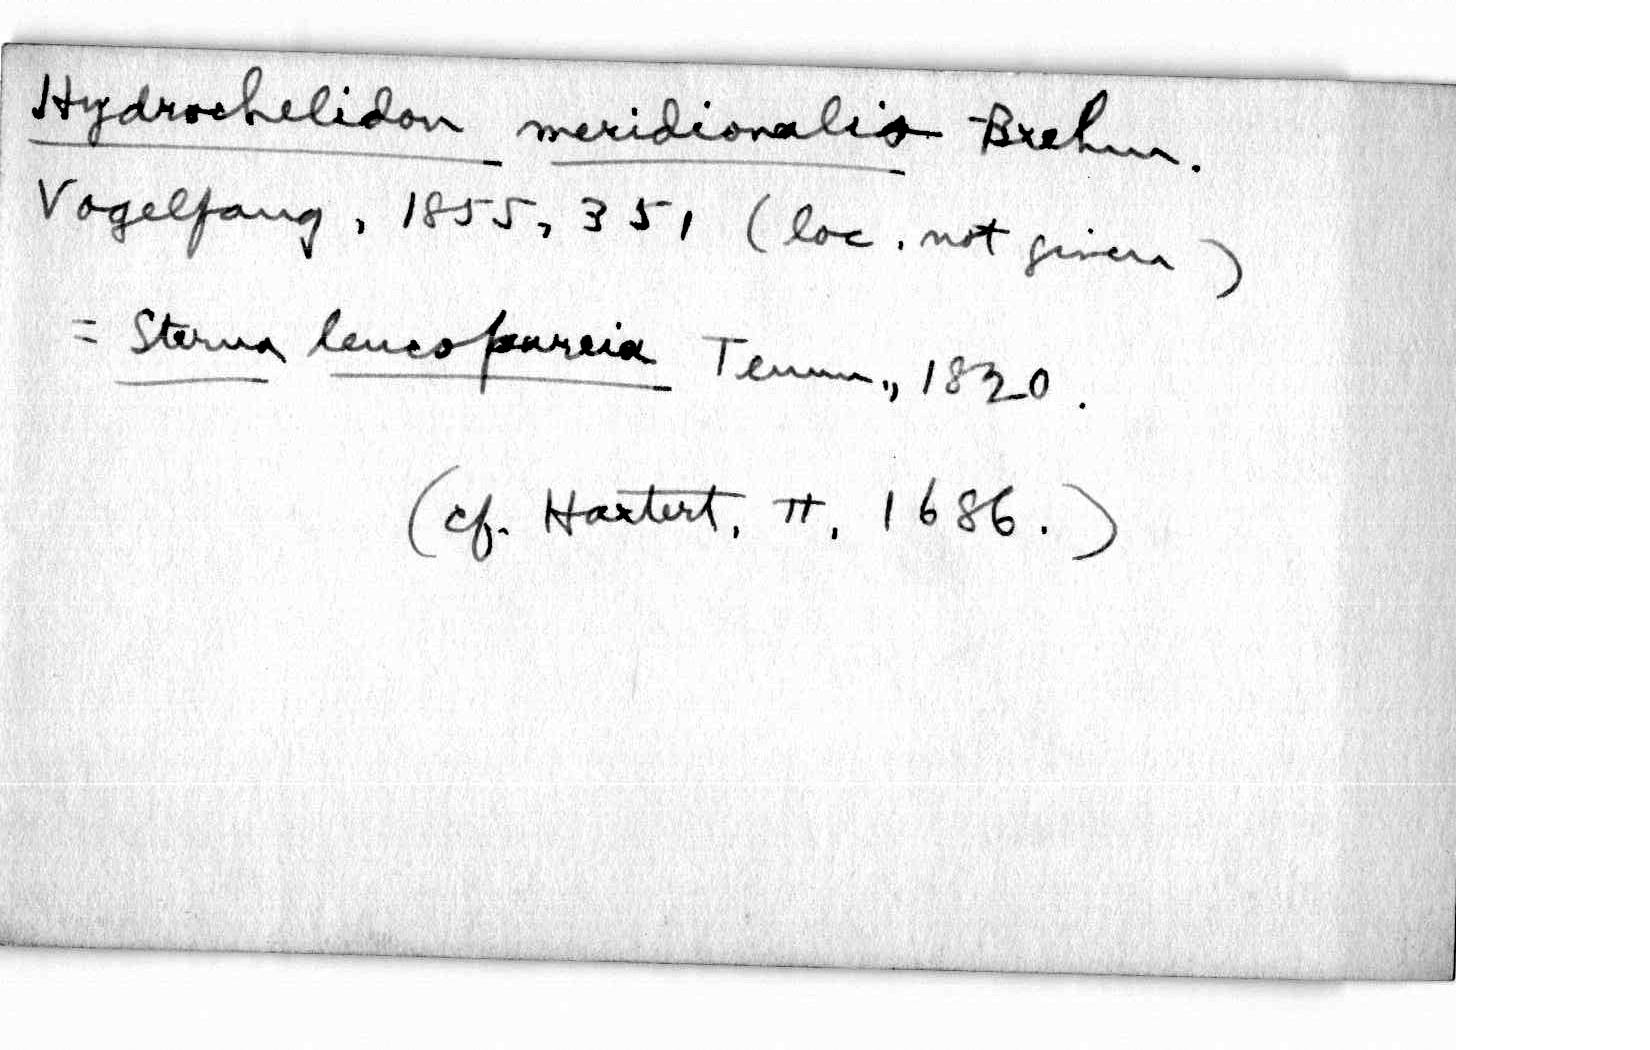 Hydrochelidon meridionalis Brehm.
Vogelfang, 1855, 351 (loc. not given)
= Sterna leucopareia Temm., 1820.
(cf. Hartert, II, 1686.)